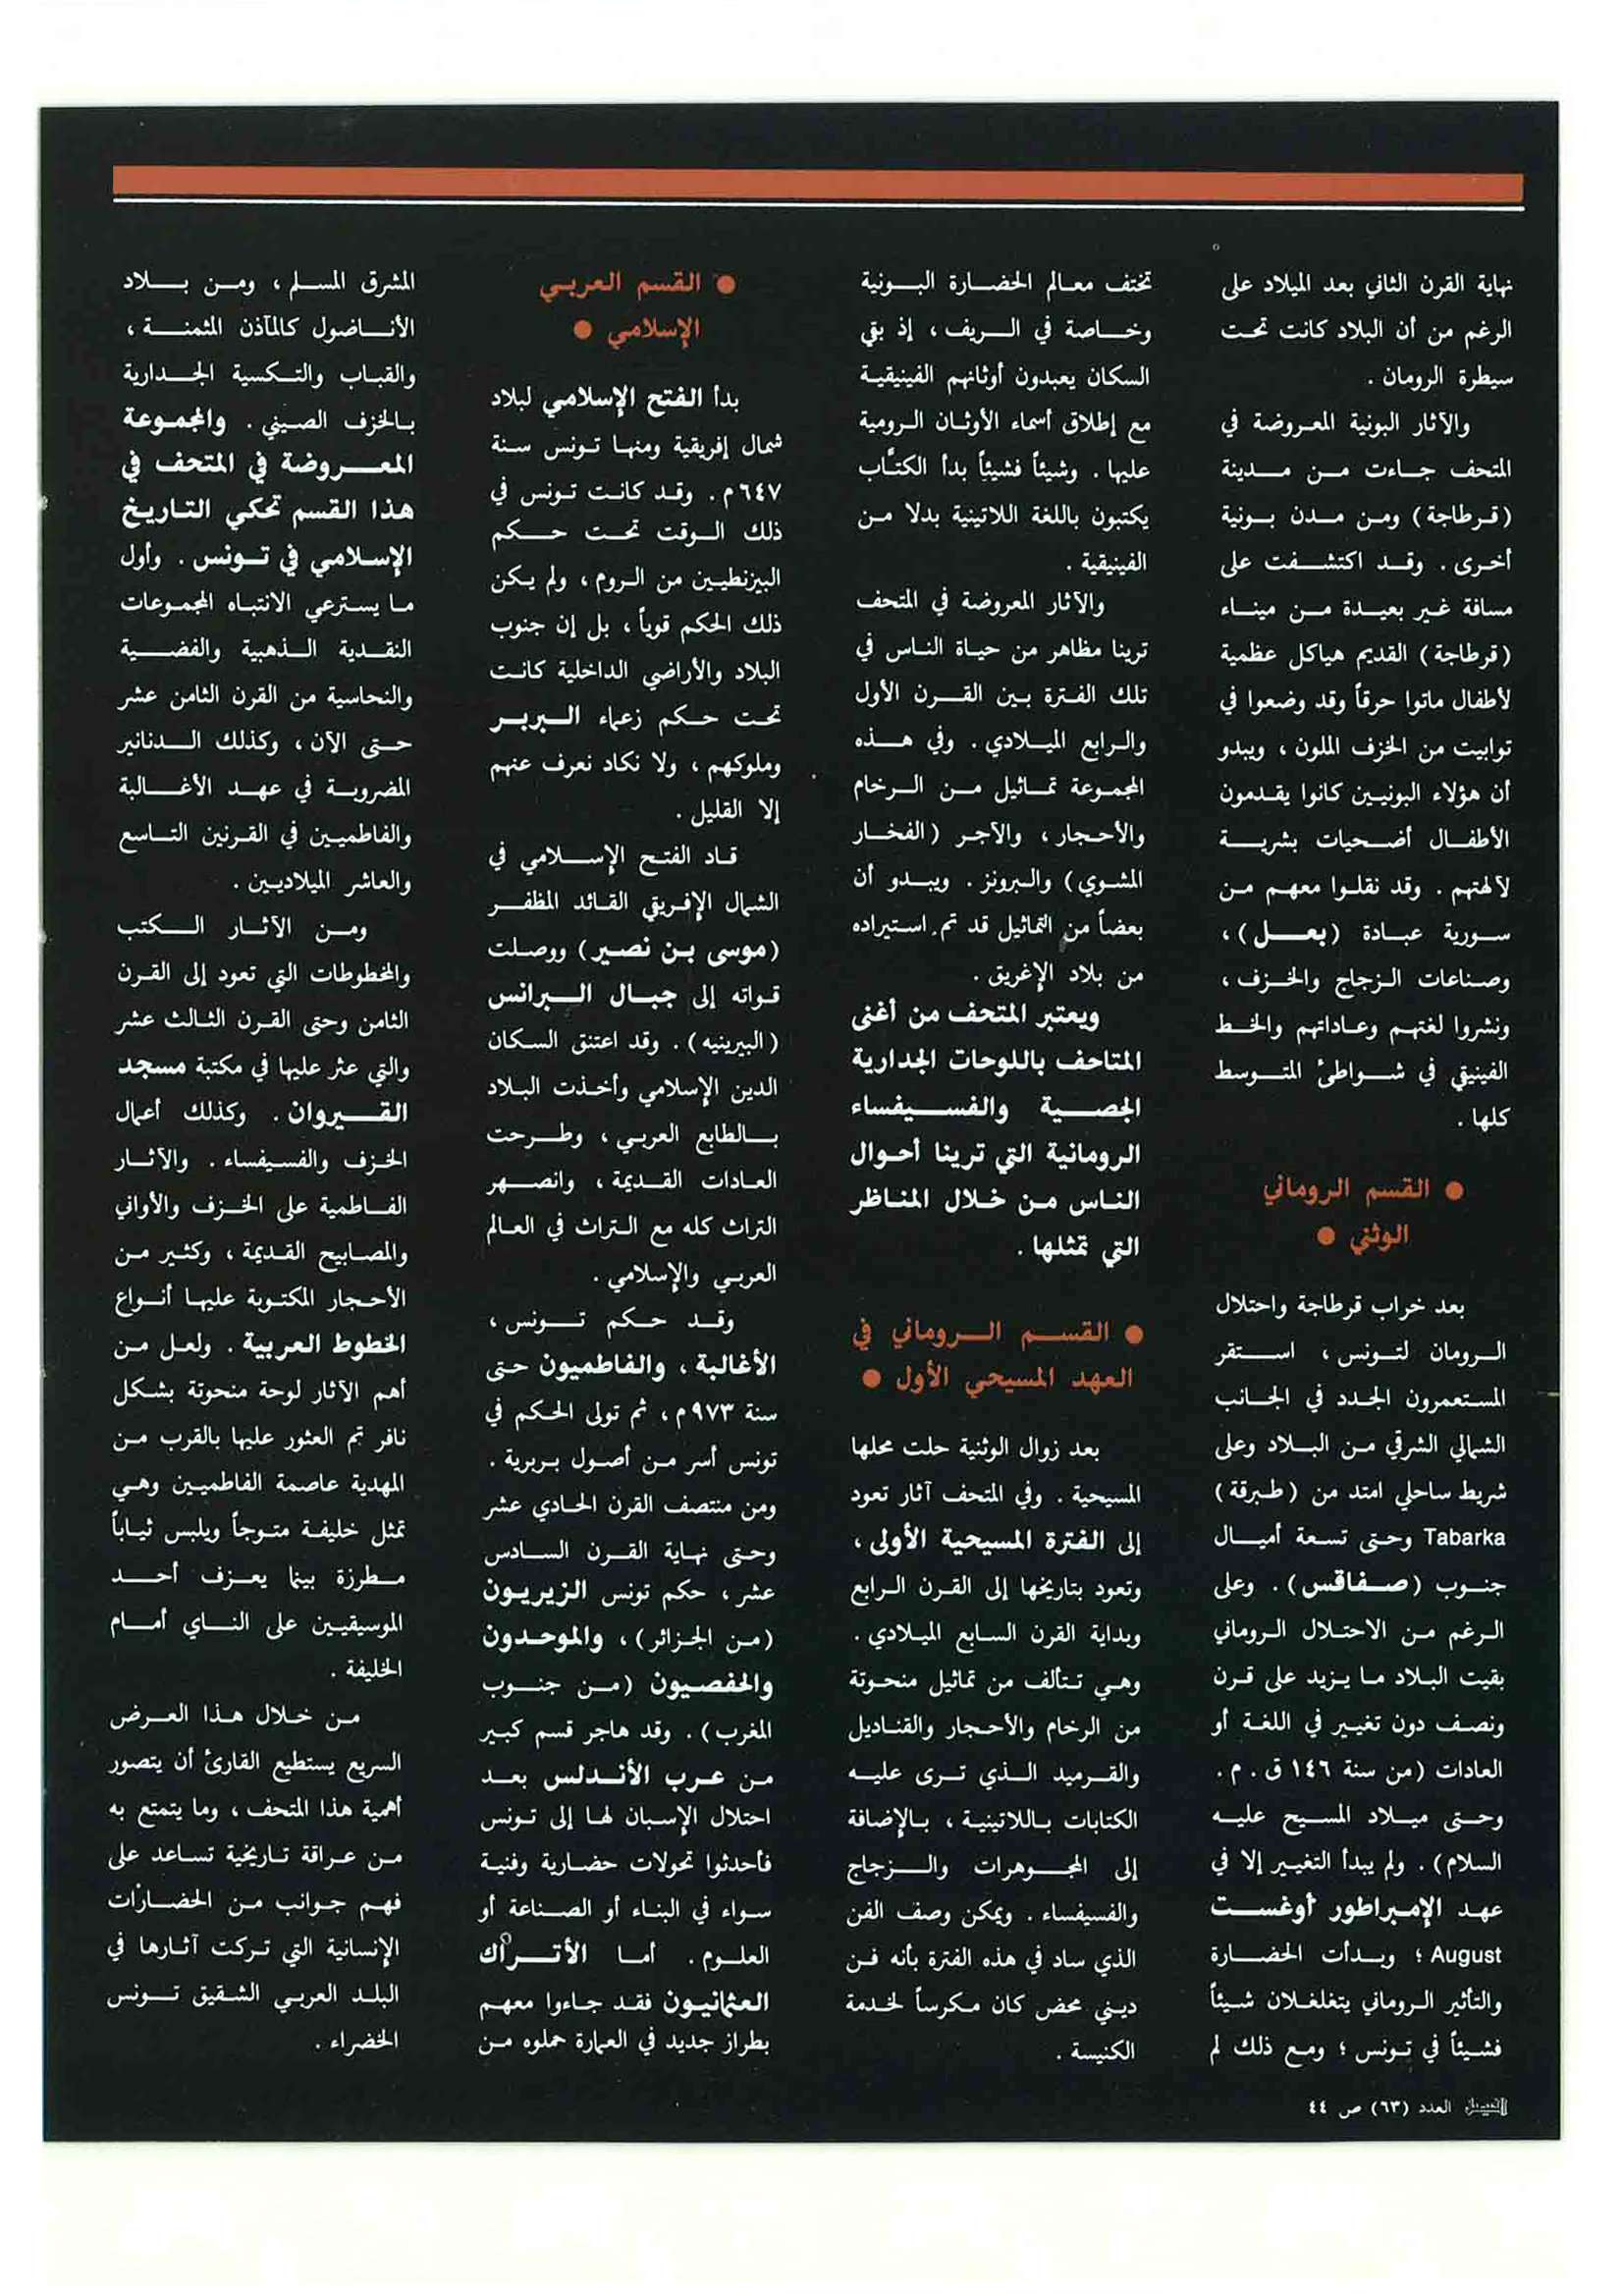 نهاية القرن الثاني بعد الميلاد على
الرغم من أن البلاد كانت تحت
سيطرة الرومان .
والآثار البونية المعروضة في
المتحف جاءت من مدينة
(قرطاجة) ومن مدن بونية
أخرى . وقد اكتشفت على
مسافة غير بعيدة من ميناء
(قرطاجة) القديم هياكل عظمية
لأطفال ماتوا حرقاً وقد وضعوا في
توابيت من الخزف الملون ، ويبدو
أن هؤلاء البونيين كانوا يقدمون
الأطفال أضحيات بشرية
لآلهتهم . وقد نقلوا معهم من
سورية عبادة (بعل) ،
وصناعات الزجاج والخزف ،
ونشروا لغتهم وعاداتهم والخط
الفينيقي في شواطئ المتوسط
كلها .
● القسم الروماني
الوثني ●
بعد خراب قرطاجة واحتلال
الرومان لتونس ، استقر
المستعمرون الجدد في الجانب
الشمالي الشرقي من البلاد وعلى
شريط ساحلي امتد من (طبرقة)
Tabarka وحتى تسعة أميال
جنوب (صفاقس) . وعلى
الرغم من الاحتلال الروماني
بقيت البلاد ما يزيد على قرن
ونصف دون تغيير في اللغة أو
العادات (من سنة ١٤٦ ق . م .
وحتى ميلاد المسيح عليه
السلام) . ولم يبدأ التغيير إلا في
عهد الإمبراطور أوغست
August ؛ وبدأت الحضارة
والتأثير الروماني يتغلغلان شيئاً
فشيئاً في تونس ؛ ومع ذلك لم
تختف معالم الحضارة البونية
وخاصة في الريف ، إذ بقي
السكان يعبدون أوثانهم الفينيقية
مع إطلاق أسماء الأوثان الرومية
عليها . وشيئاً فشيئاً بدأ الكتَّاب
يكتبون باللغة اللاتينية بدلا من
الفينيقية .
والآثار المعروضة في المتحف
ترينا مظاهر من حياة الناس في
تلك الفترة بين القرن الأول
والرابع الميلادي . وفي هذه
المجموعة تماثيل من الرخام
والأحجار ، والآجر (الفخار
المشوي) والبرونز . ويبدو أن
بعضاً من التماثيل قد تم استيراده
من بلاد الإغريق .
ويعتبر المتحف من أغنى
المتاحف باللوحات الجدارية
الجصية والفسيفساء
الرومانية التي ترينا أحوال
الناس من خلال المناظر
التي تمثلها .
● القسم الروماني في
العهد المسيحي الأول ●
بعد زوال الوثنية حلت محلها
المسيحية . وفي المتحف آثار تعود
إلى الفترة المسيحية الأولى ،
وتعود بتاريخها إلى القرن الرابع
وبداية القرن السابع الميلادي .
وهي تتألف من تماثيل منحوتة
من الرخام والأحجار والقناديل
والقرميد الذي ترى عليه
الكتابات باللاتينية ، بالإضافة
إلى المجوهرات والزجاج
والفسيفساء . ويمكن وصف الفن
الذي ساد في هذه الفترة بأنه فن
ديني محض كان مكرساً لخدمة
الكنيسة .
● القسم العربي
الإسلامي ●
بدأ الفتح الإسلامي لبلاد
شمال إفريقية ومنها تونس سنة
٦٤٧م . وقد كانت تونس في
ذلك الوقت تحت حكم
البيزنطيين من الروم ، ولم يكن
ذلك الحكم قوياً ، بل إن جنوب
البلاد والأراضي الداخلية كانت
تحت حكم زعماء البربر
وملوكهم ، ولا نكاد نعرف عنهم
إلا القليل .
قاد الفتح الإسلامي في
الشمال الإفريقي القائد المظفر
(موسى بن نصير) ووصلت
قواته إلى جبال البرانس
(البيرينيه) . وقد اعتنق السكان
الدين الإسلامي وأخذت البلاد
بالطابع العربي ، وطرحت
العادات القديمة ، وانصهر
التراث كله مع التراث في العالم
العربي والإسلامي .
وقد حكم تونس ،
الأغالبة ، والفاطميون حتى
سنة ٩٧٣م ، ثم تولى الحكم في
تونس أسر من أصول بربرية .
ومن منتصف القرن الحادي عشر
وحتى نهاية القرن السادس
عشر ، حكم تونس الزيريون
(من الجزائر) ، والموحدون
والحفصيون (من جنوب
المغرب) . وقد هاجر قسم كبير
من عرب الأندلس بعد
احتلال الإسبان لها إلى تونس
فأحدثوا تحولات حضارية وفنية
سواء في البناء أو الصناعة أو
العلوم . أما الأتراك
العثمانيون فقد جاءوا معهم
بطراز جديد في العمارة حملوه من
المشرق المسلم ، ومن بلاد
الأناضول كالمآذن المثمنة ،
والقباب والتكسية الجدارية
بالخزف الصيني . والمجموعة
المعروضة في المتحف في
هذا القسم تحكي التاريخ
الإسلامي في تونس . وأول
ما يسترعي الانتباه المجموعات
النقدية الذهبية والفضية
والنحاسية من القرن الثامن عشر
حتى الآن ، وكذلك الدنانير
المضروبة في عهد الأغالبة
والفاطميين في القرنين التاسع
والعاشر الميلاديين .
ومن الآثار الكتب
والمخطوطات التي تعود إلى القرن
الثامن وحتى القرن الثالث عشر
والتي عثر عليها في مكتبة مسجد
القيروان . وكذلك أعمال
الخزف والفسيفساء . والآثار
الفاطمية على الخزف والأواني
والمصابيح القديمة ، وكثير من
الأحجار المكتوبة عليها أنواع
الخطوط العربية . ولعل من
أهم الآثار لوحة منحوتة بشكل
نافر تم العثور عليها بالقرب من
المهدية عاصمة الفاطميين وهي
تمثل خليفة متوجاً ويلبس ثياباً
مطرزة بينما يعزف أحد
الموسيقيين على الناي أمام
الخليفة .
من خلال هذا العرض
السريع يستطيع القارئ أن يتصور
أهمية هذا المتحف ، وما يتمتع به
من عراقة تاريخية تساعد على
فهم جوانب من الحضارات
الإنسانية التي تركت آثارها في
البلد العربي الشقيق تونس
الخضراء .
الفيصل العدد (٦٣) ص ٤٤